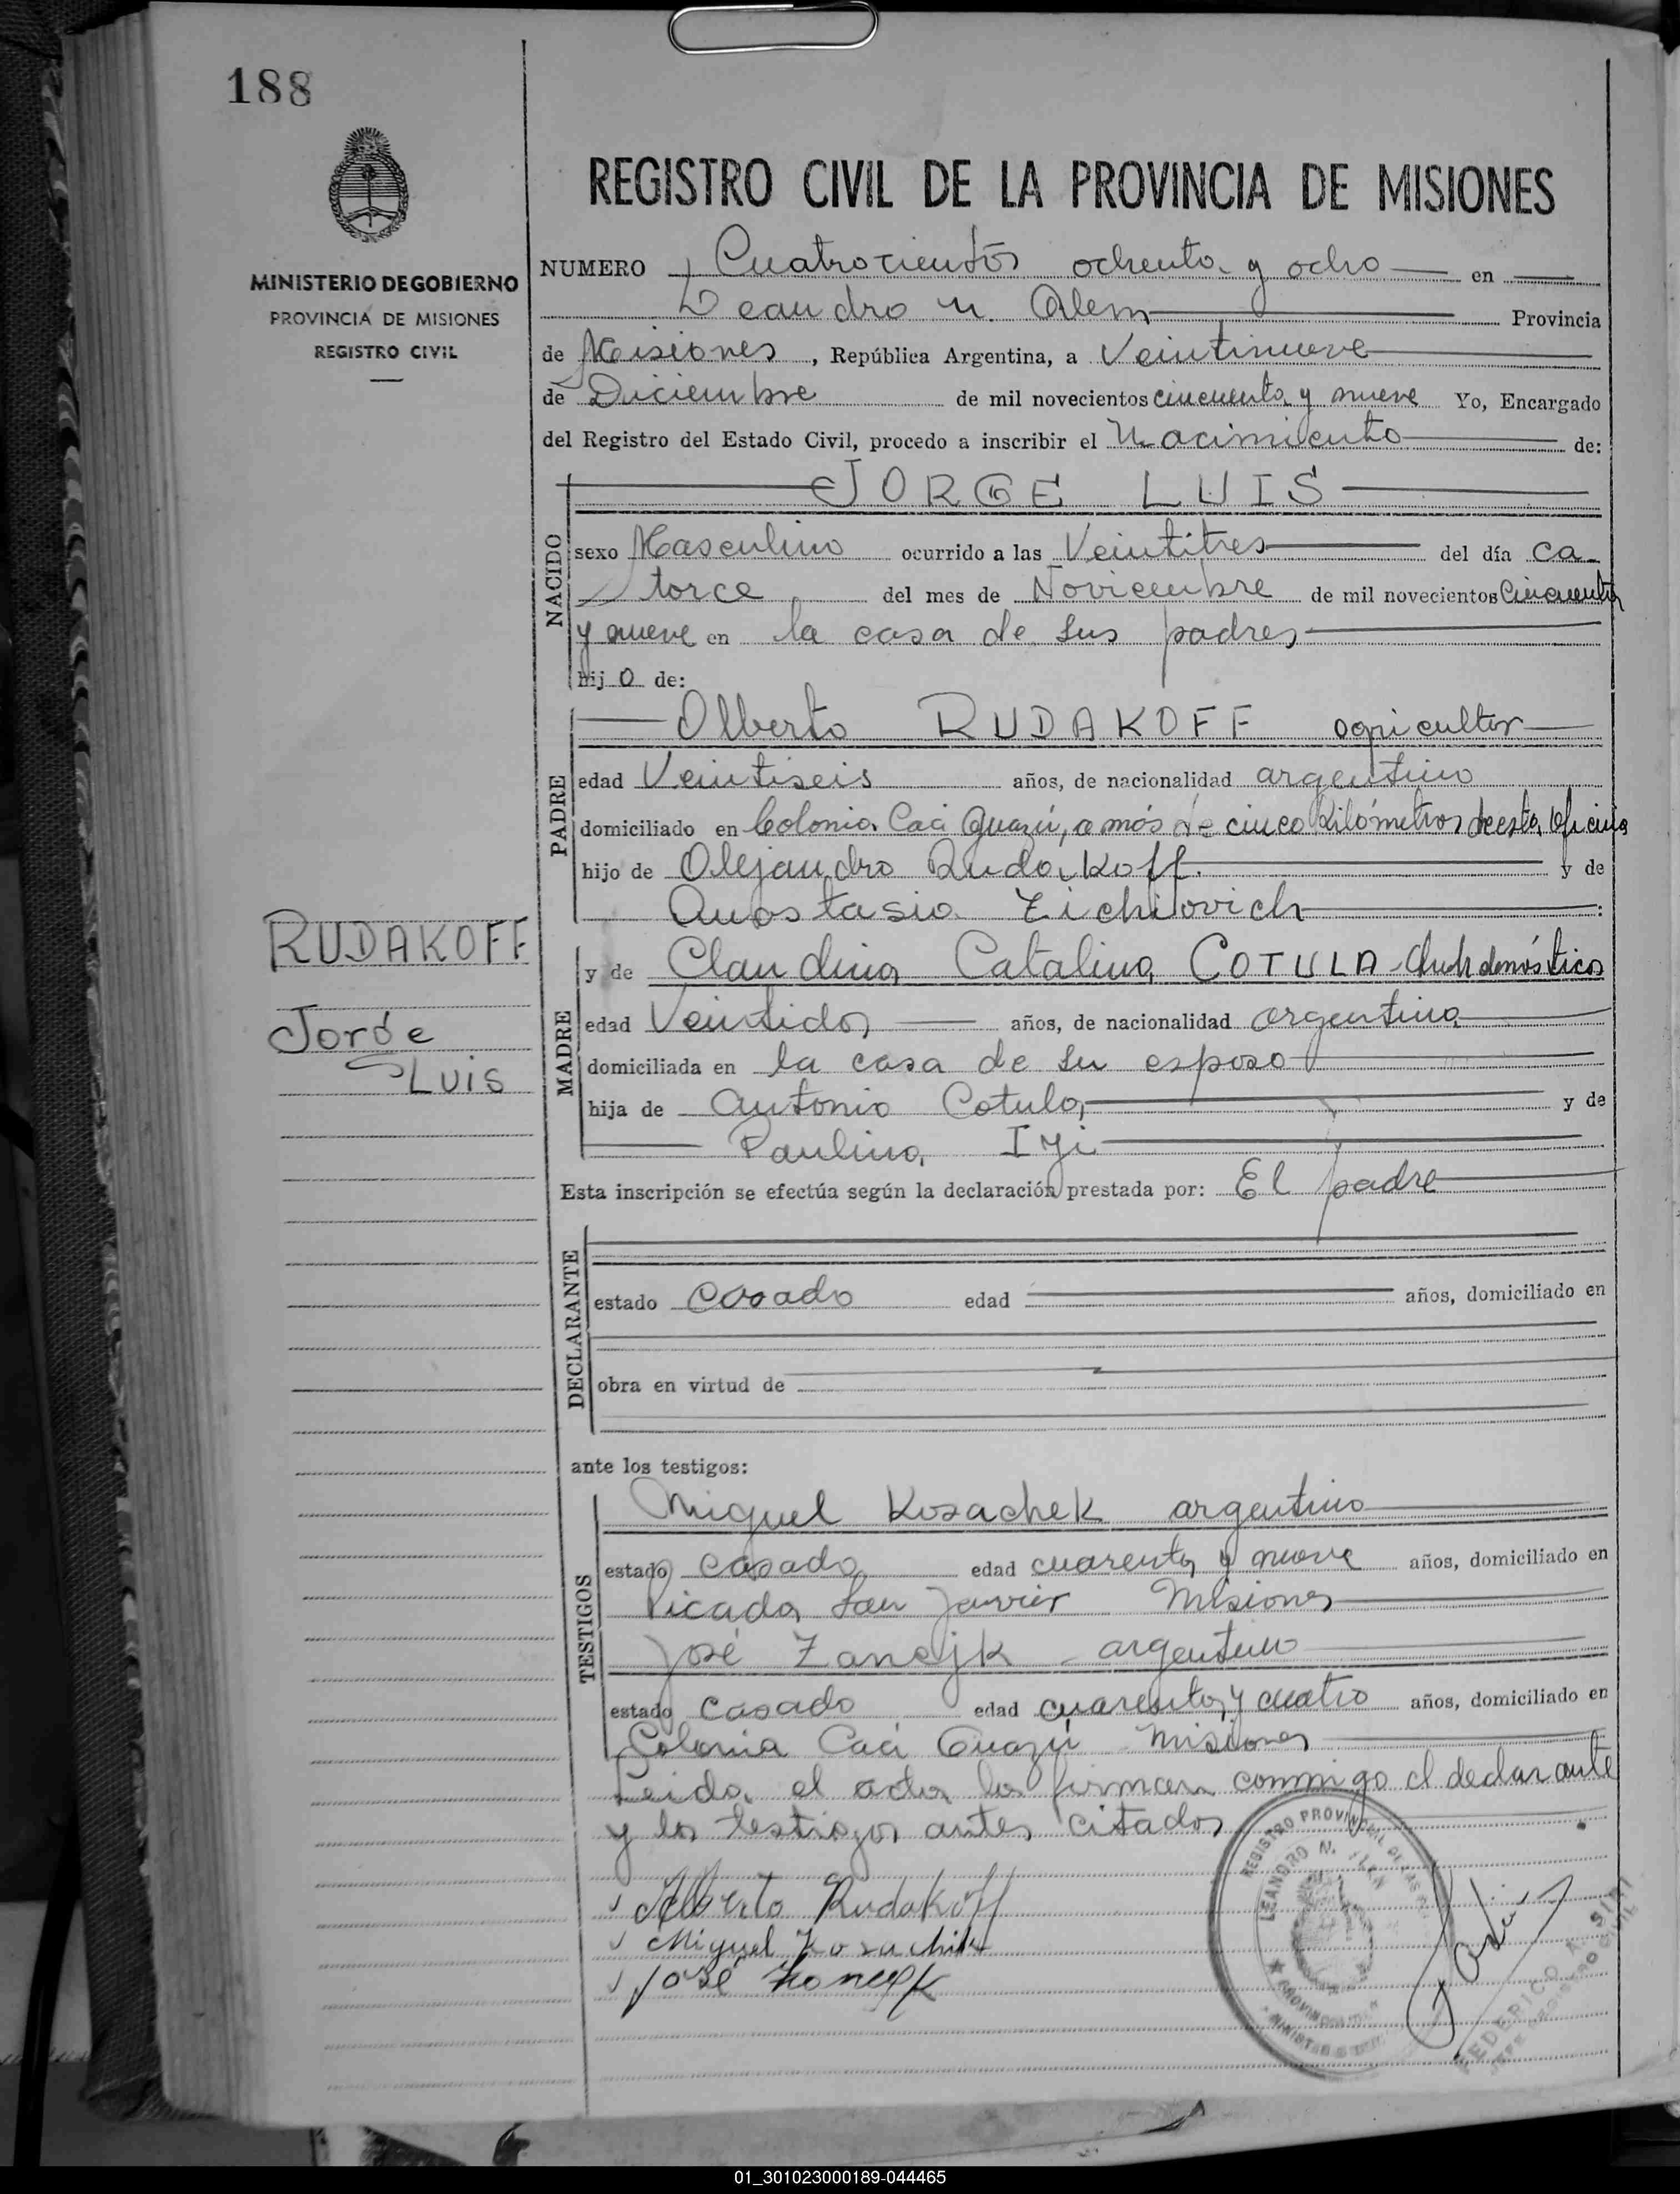 188
REGISTRO CIVIL DE LA PROVINCIA DE MISIONES
MINISTERIO DE GOBIERNO
PROVINCIA DE MISIONES
REGISTRO CIVIL
NUMERO Cuatrocientos ochenta y ocho en
Leandro N. Alem Provincia
de Misiones, República Argentina, a Veintinueve
de Diciembre de mil novecientos cincuenta y nueve Yo, Encargado
del Registro del Estado Civil, procedo a inscribir el Nacimiento de:
NACIDO
JORGE LUIS
sexo Masculino ocurrido a las Veintitres del día ca-
torce del mes de Noviembre de mil novecientos Cincuenta
y nueve en la casa de sus padres
hijo de:
PADRE
Alberto RUDAKOFF agricultor
edad Veintiseis años, de nacionalidad argentino
domiciliado en Colonia Caá Guazú, a más de cinco Kilómetros de esta Oficina
hijo de Alejandro Rudakoff y de
Anastasia :
RUDAKOFF
Jorge
Luis
MADRE
y de Claudina Catalina COTULA
edad Veintidos años, de nacionalidad argentina
domiciliada en la casa de su esposo
hija de Antonio Cotula y de
Paulina
Esta inscripción se efectúa según la declaración prestada por: El padre
DECLARANTE
estado casado edad años, domiciliado en
obra en virtud de
ante los testigos:
TESTIGOS
Miguel Kosachek argentino
estado casado edad cuarenta y nueve años, domiciliado en
Picada San Javier Misiones
José argentino
estado casado edad cuarenta y cuatro años, domiciliado en
Colonia Caá Guazú Misiones
Leida el acta la firman conmigo el declarante
y los testigos antes citados
Alberto Rudakoff
Miguel
José
REGISTRO PROVINCIAL DE LAS
LEANDRO N. ALEM
FEDERICO
JEFE REGISTRO CIVIL
01_301023000189-044465